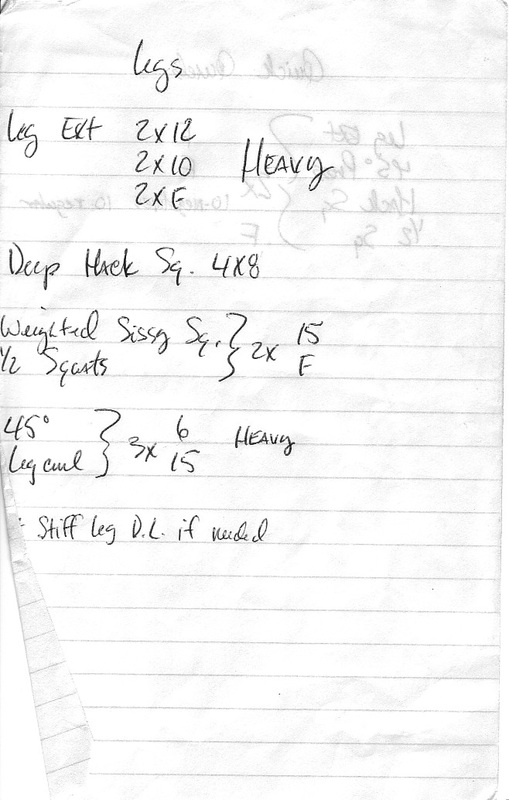 Legs
Leg Ext 2x12
2x10 HEAVY
2xF
Deep Hack Sq. 4x8
Weighted Sissy Sq. } 2x 15
1/2 Squats F
45° } 3x 6 HEAVY
Leg curl 15
: Stiff Leg D.L. if needed